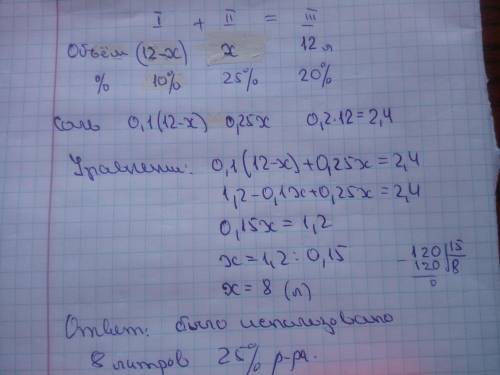 I + II = III
Объём (12-x) x 12 л
% 10% 25% 20%
Соль 0,1(12-x) 0,25x 0,2·12=2,4
Уравнение: 0,1(12-x)+0,25x=2,4
1,2-0,1x+0,25x=2,4
0,15x=1,2
x=1,2:0,15
x=8 (л)
-120|15
120|8
0
Ответ: было использовано
8 литров 25% р-ра.